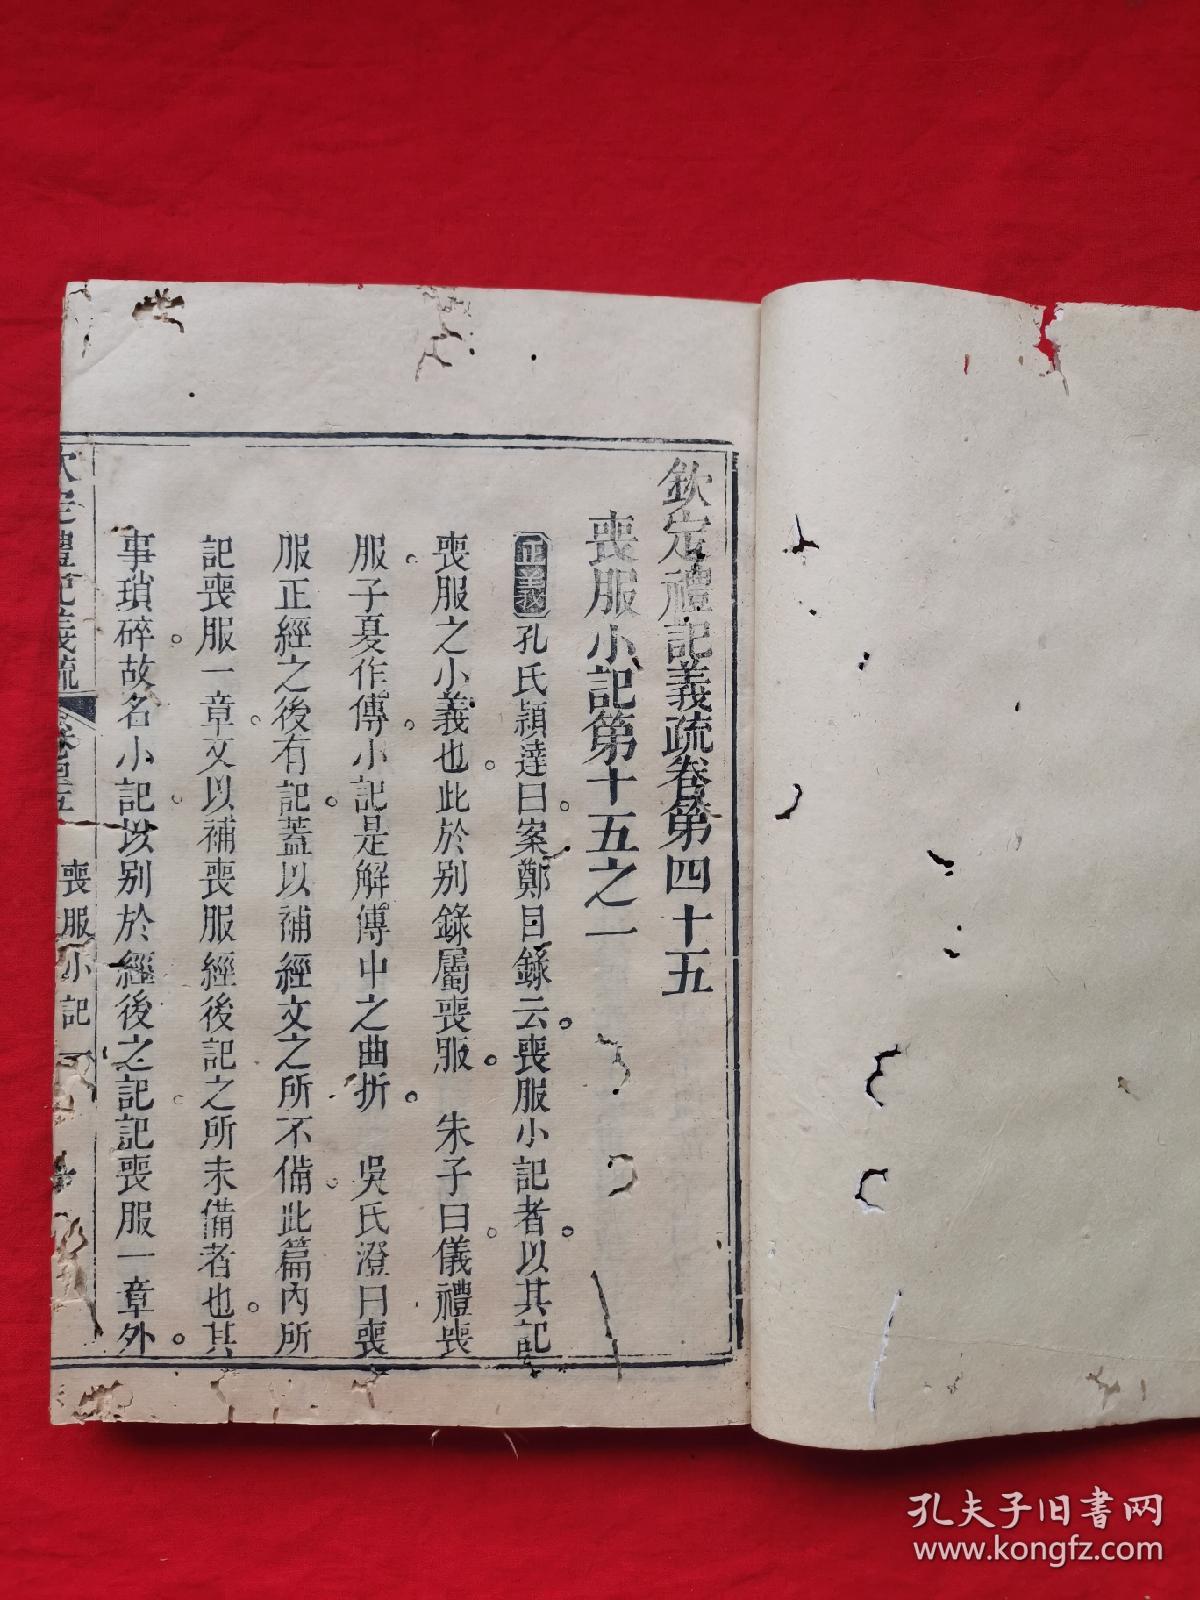 欽定禮記義疏卷第四十五
喪服小記第十五之一
正義孔氏穎達曰案鄭目錄云喪服小記者以其記
喪服之小義也此於别錄屬喪服　朱子曰儀禮喪
服子夏作傳小記是解傳中之曲折　吳氏澄曰喪
服正經之後有記蓋以補經文之所不備此篇內所
記喪服一章又以補喪服經後記之所未備者也其
事瑣碎故名小記以别於經後之記記喪服一章外
欽定禮記義疏　卷四十五　喪服小記
孔夫子旧书网
www.kongfz.com